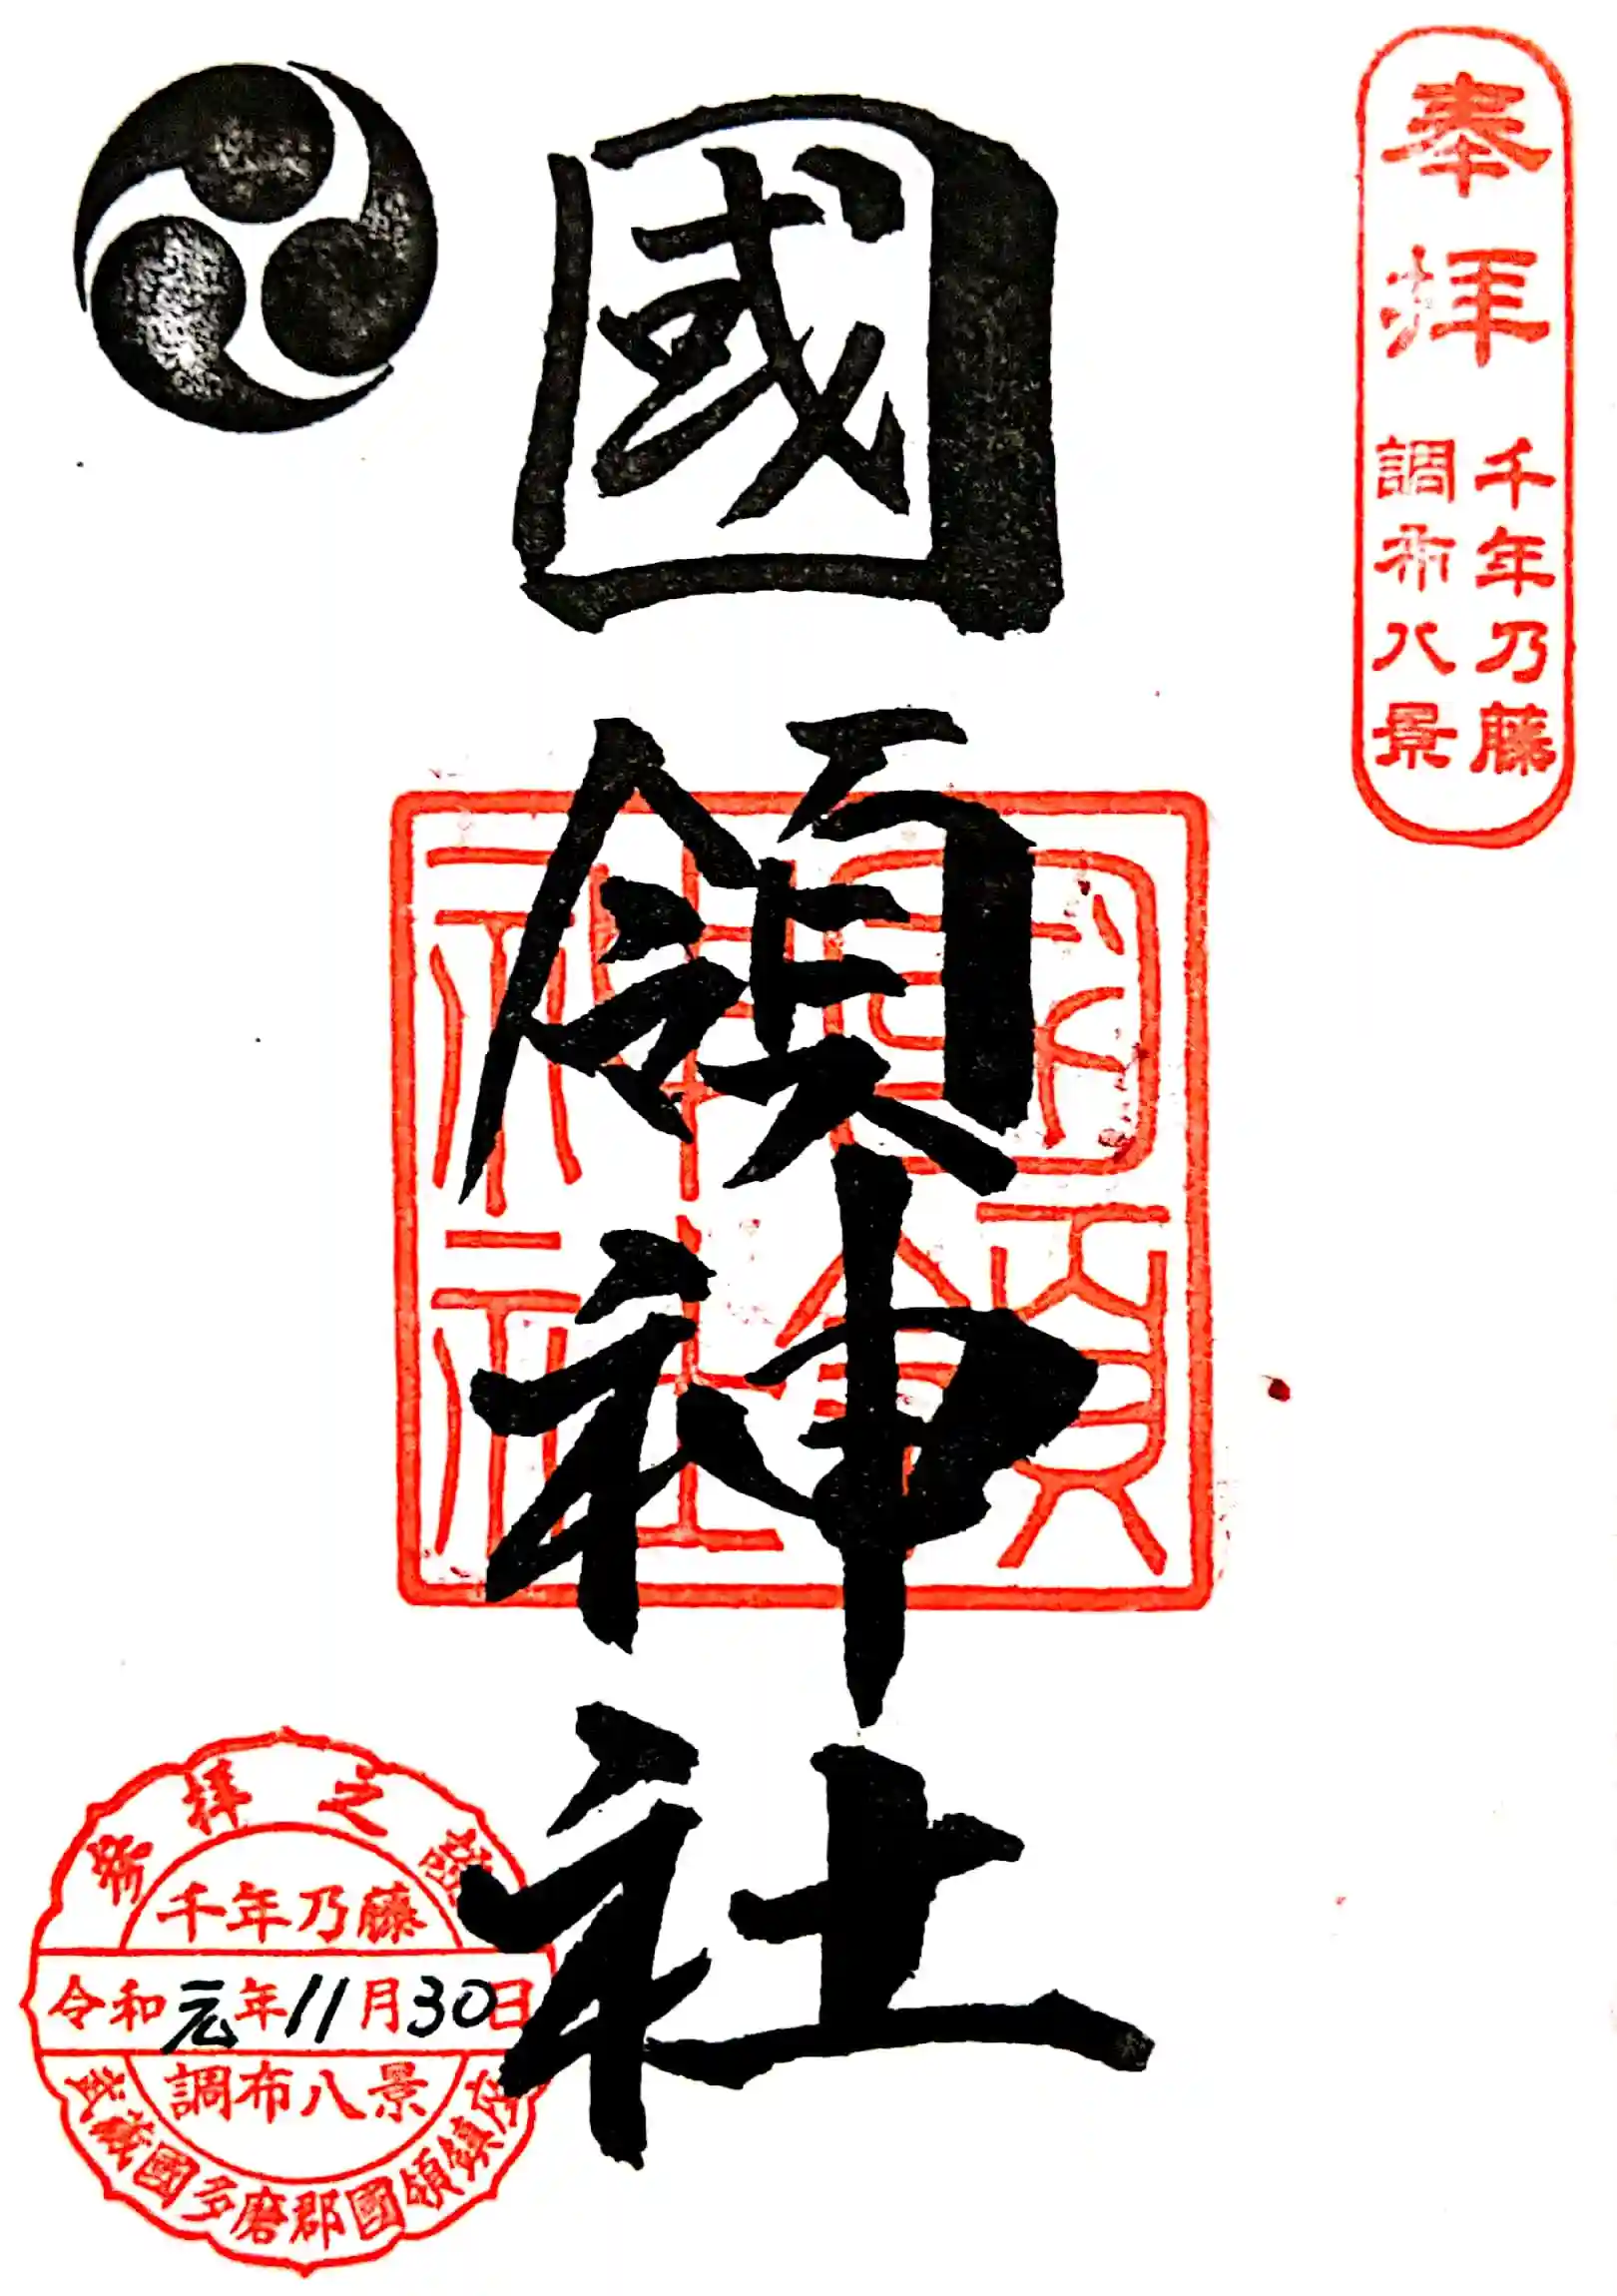 奉拝
千年乃藤
調布八景
國領神社
國領
神社
参拝之證
千年乃藤
令和元年11月30日
調布八景
武蔵國多磨郡國領鎮座